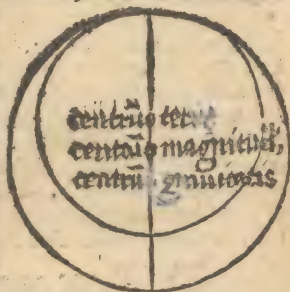 centrū terre
centrū magnitudī,
centrū grauitatis